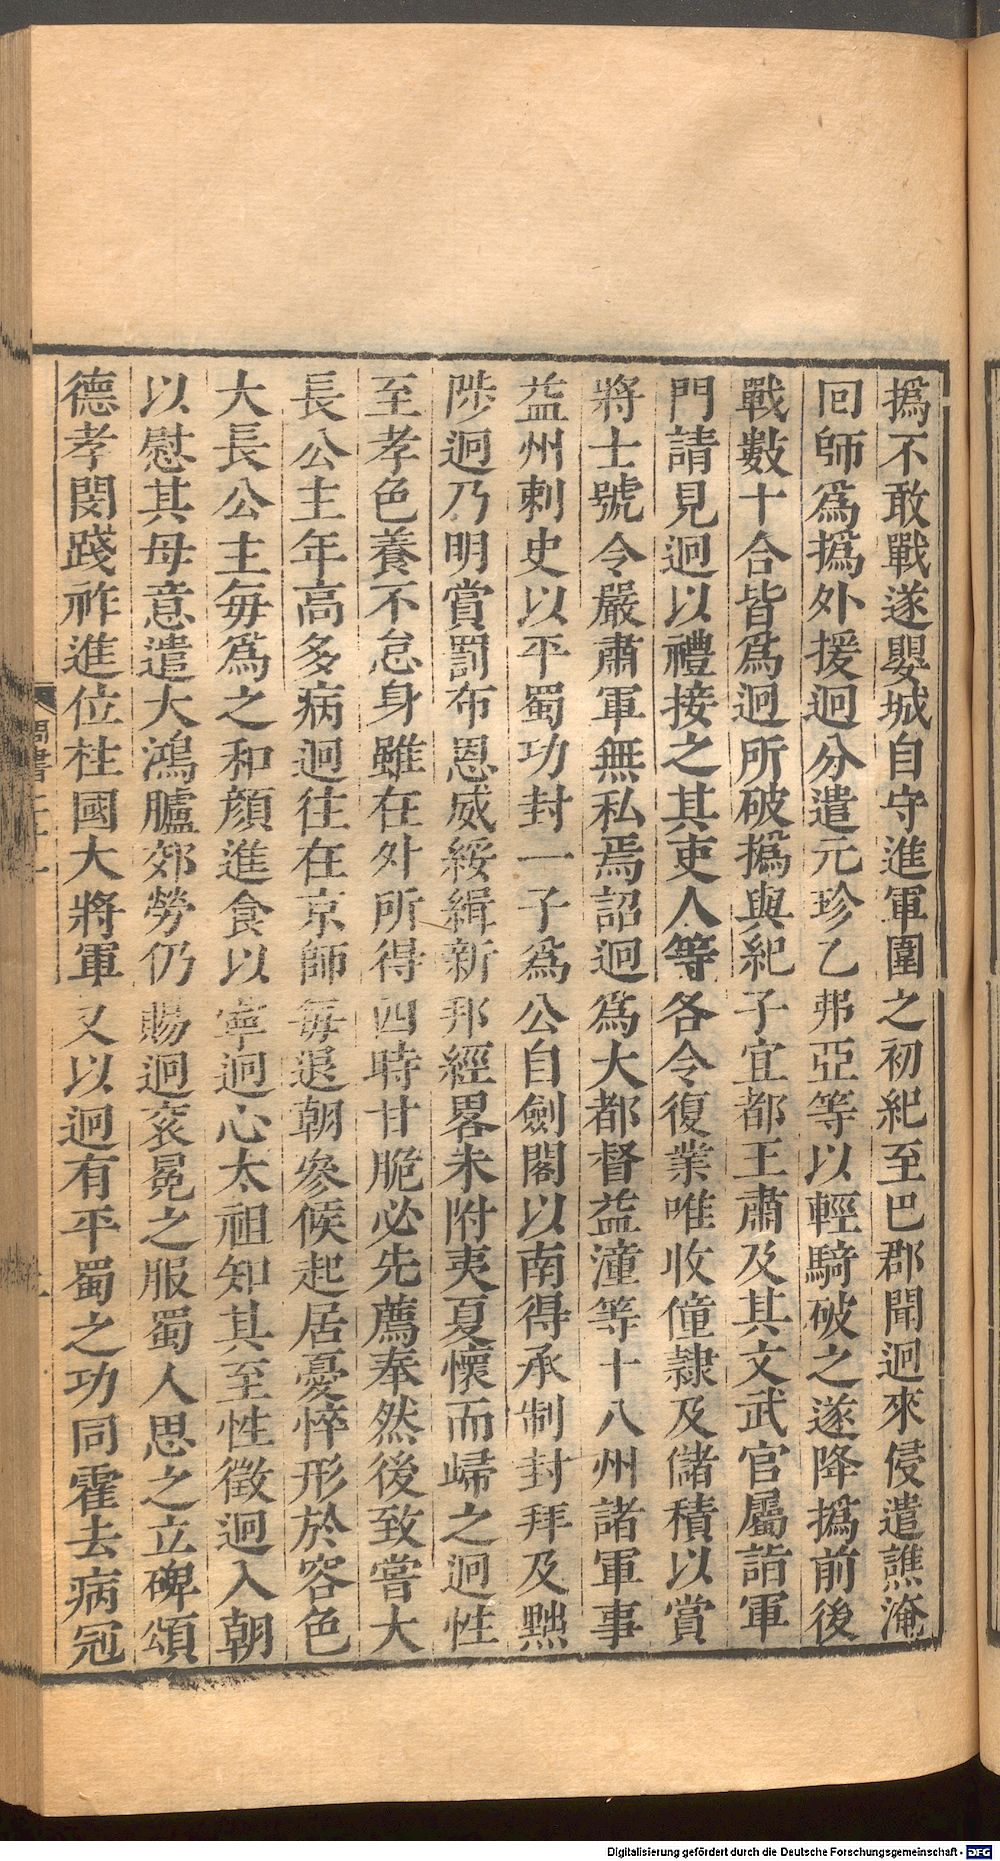 撝不敢戰遂嬰城自守進軍圍之初紀至巴郡聞迥來侵遣譙淹
回師爲撝外援迥分遣元珍乙弗亞等以輕騎破之遂降撝前後
戰數十合皆爲迥所破撝與紀子宜都王肅及其文武官屬詣軍
門請見迥以禮接之其吏人等各令復業唯收僮隸及儲積以賞
將士號令嚴肅軍無私焉詔迥爲大都督益潼等十八州諸軍事
益州刺史以平蜀功封一子爲公自劍閣以南得承制封拜及黜
陟迥乃明賞罰布恩威綏緝新邦經畧未附夷夏懷而歸之迥性
至孝色養不怠身雖在外所得四時甘脆必先薦奉然後致嘗大
長公主年高多病迥往在京師每退朝參候起居憂悴形於容色
大長公主每爲之和顏進食以寧迥心太祖知其至性徵迥入朝
以慰其母意遣大鴻臚郊勞仍賜迥衮冕之服蜀人思之立碑頌
德孝閔踐祚進位柱國大將軍又以迥有平蜀之功同霍去病冠
周書二十一
Digitalisierung gefördert durch die Deutsche Forschungsgemeinschaft - DFG